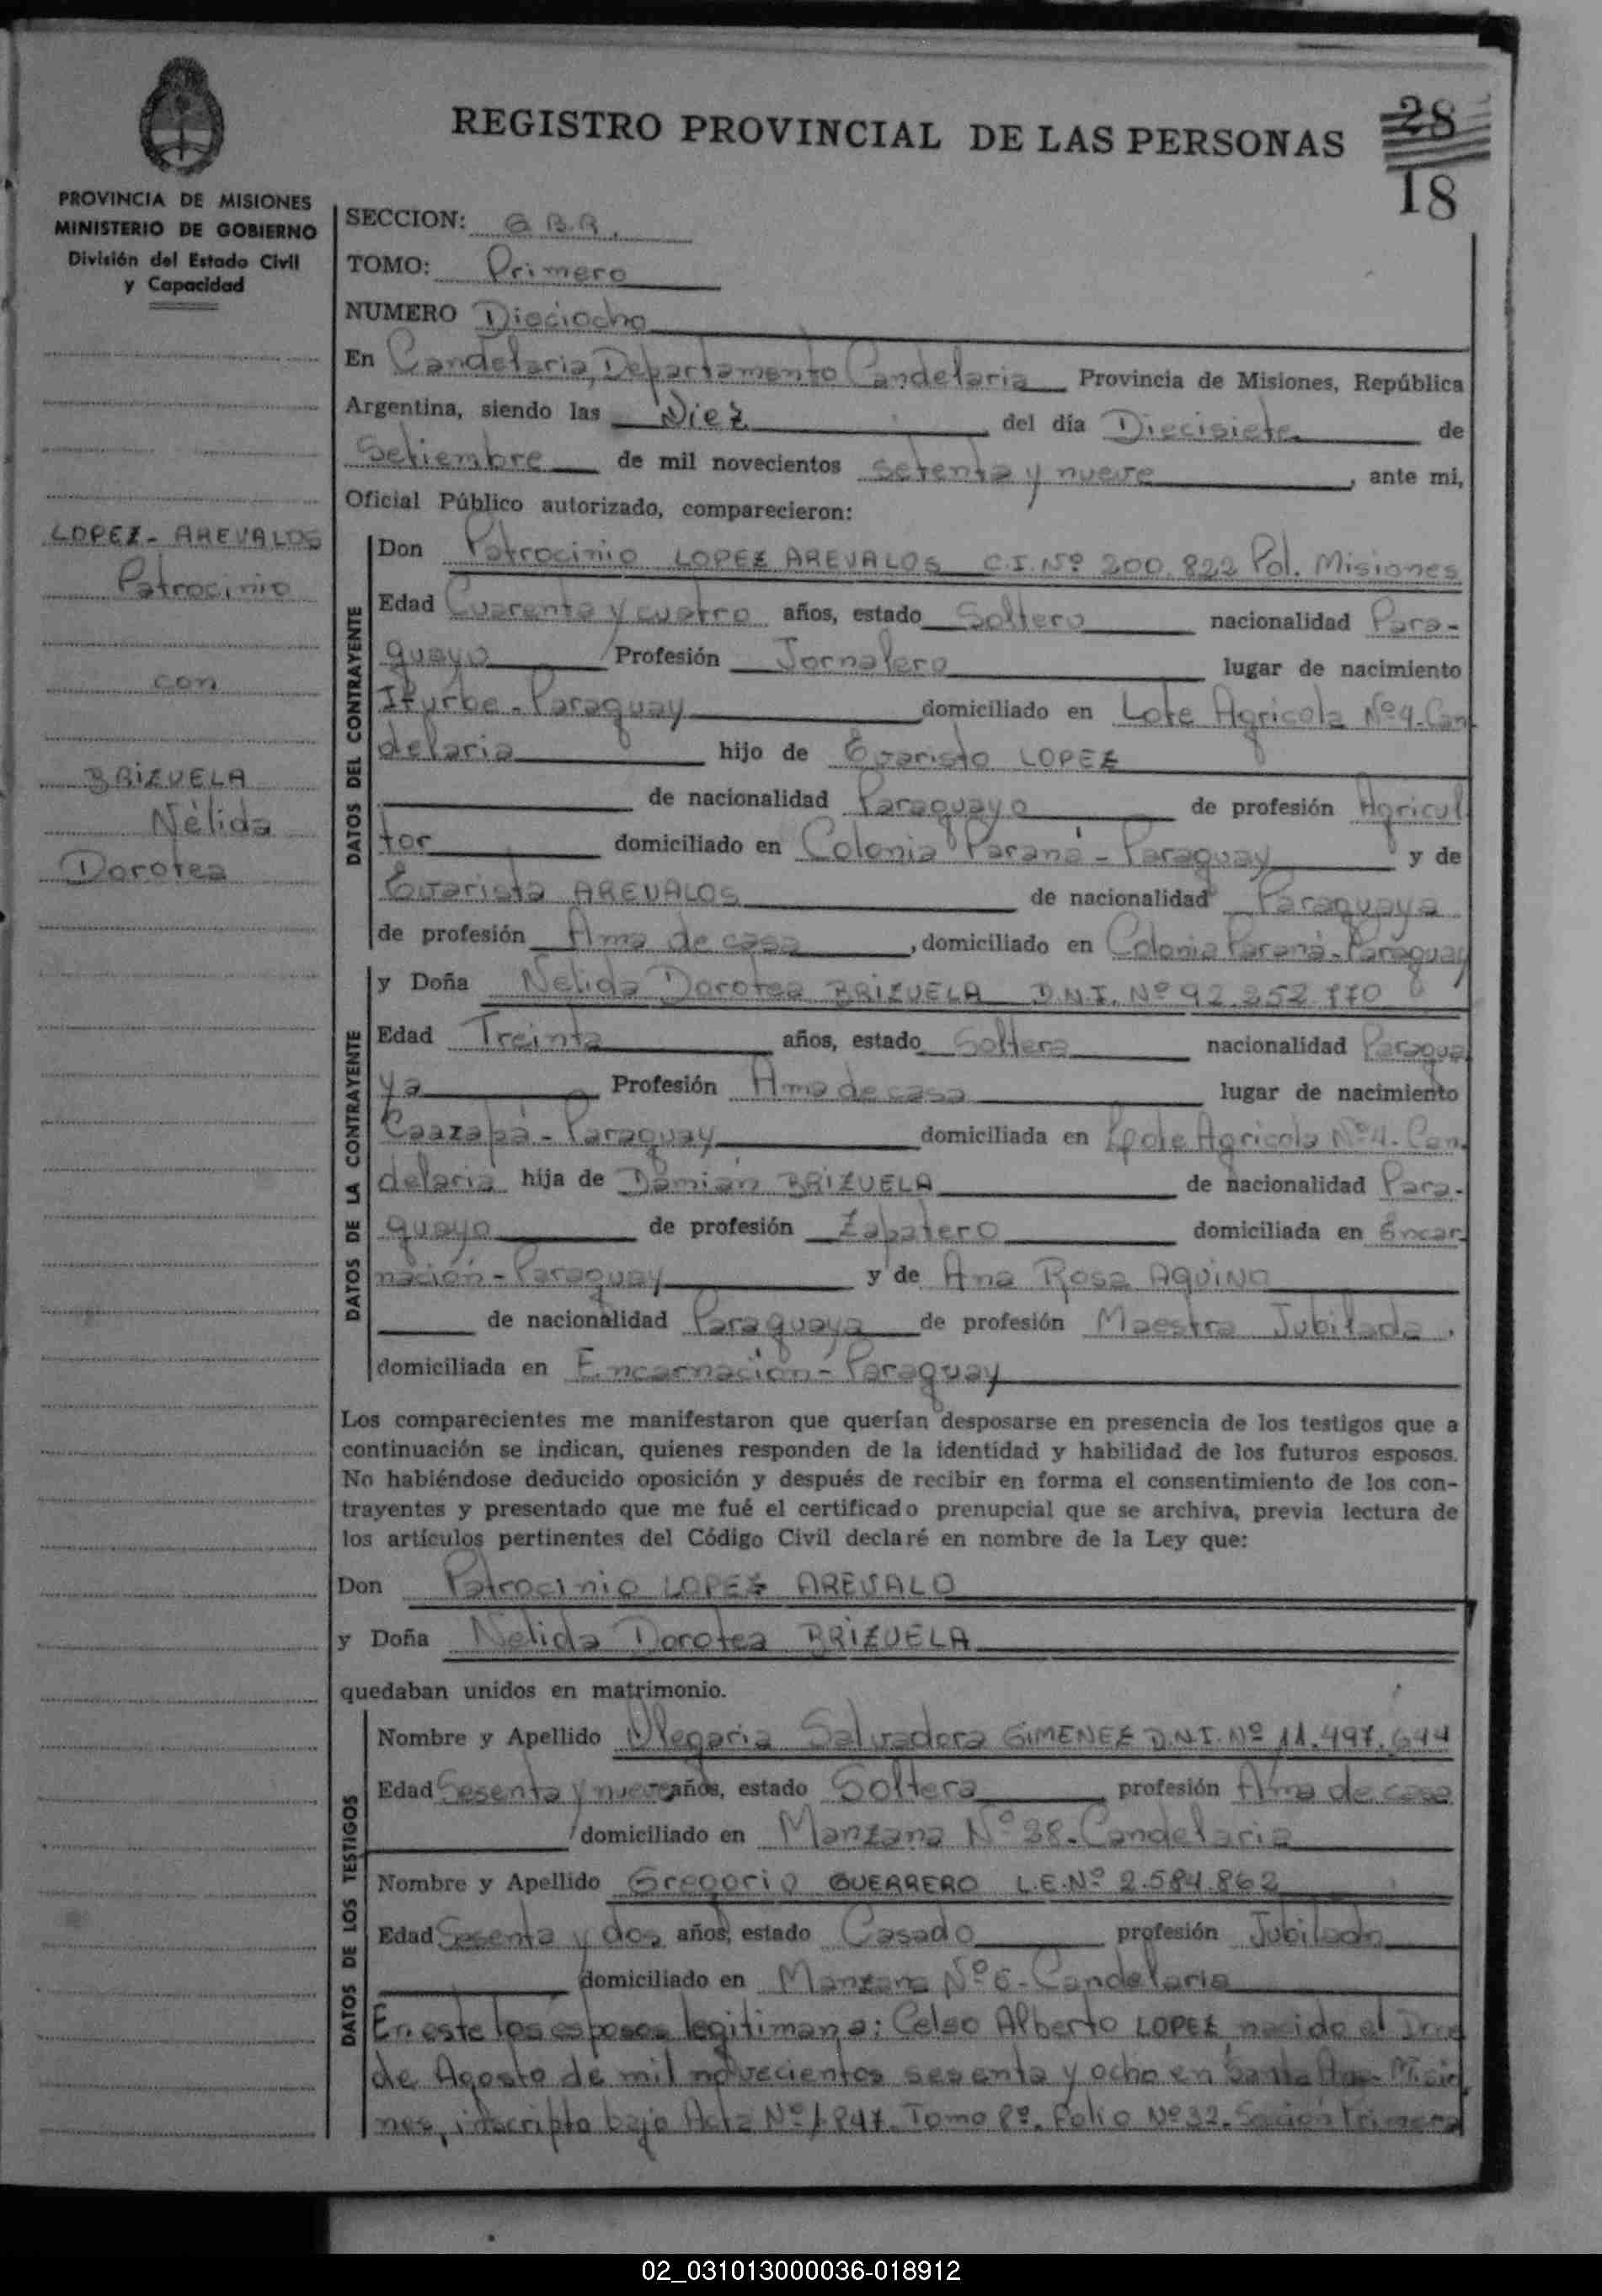 REGISTRO PROVINCIAL DE LAS PERSONAS
28
18
PROVINCIA DE MISIONES
MINISTERIO DE GOBIERNO
División del Estado Civil
y Capacidad
LOPEZ - AREVALOS
Patrocinio
con
BRIZUELA
Nélida
Dorotea
SECCION:
TOMO: Primero
NUMERO Dieciocho
En Candelaria, Departamento Candelaria Provincia de Misiones, República
Argentina, siendo las Diez del día Diecisiete de
Setiembre de mil novecientos setenta y nueve, ante mi,
Oficial Público autorizado, comparecieron:
DATOS DEL CONTRAYENTE
Don Patrocinio LOPEZ AREVALOS C.I. Nº 200.822 Pol. Misiones
Edad Cuarenta y cuatro años, estado Soltero nacionalidad Para-
guayo Profesión Jornalero lugar de nacimiento
Iturbe - Paraguay domiciliado en Lote Agricola Nº 4 - Can
delaria hijo de Evaristo LOPEZ
de nacionalidad Paraguayo de profesión Agricul
tor domiciliado en Colonia Paraná - Paraguay y de
Evarista AREVALOS de nacionalidad Paraguaya
de profesión Ama de casa, domiciliado en Colonia Paraná - Paraguay
DATOS DE LA CONTRAYENTE
y Doña Nelida Dorotea BRIZUELA D.N.I. Nº 92.252.770
Edad Treinta años, estado Soltera nacionalidad Paragua
ya Profesión Ama de casa lugar de nacimiento
Caazapá - Paraguay domiciliada en Lote Agricola Nº 4 - Can
delaria hija de Damián BRIZUELA de nacionalidad Para-
guayo de profesión Zapatero domiciliada en Encar
nación - Paraguay y de Ana Rosa AQUINO
de nacionalidad Paraguaya de profesión Maestra Jubilada,
domiciliada en Encarnación - Paraguay
Los comparecientes me manifestaron que querían desposarse en presencia de los testigos que a
continuación se indican, quienes responden de la identidad y habilidad de los futuros esposos.
No habiéndose deducido oposición y después de recibir en forma el consentimiento de los con-
trayentes y presentado que me fué el certificado prenupcial que se archiva, previa lectura de
los artículos pertinentes del Código Civil declaré en nombre de la Ley que:
Don Patrocinio LOPEZ AREVALO
y Doña Nelida Dorotea BRIZUELA
quedaban unidos en matrimonio.
DATOS DE LOS TESTIGOS
Nombre y Apellido Olegaria Salvadora GIMENEZ D.N.I. Nº 11.497.644
Edad Sesenta y nueve años, estado Soltera profesión Ama de casa
domiciliado en Manzana Nº 38 - Candelaria
Nombre y Apellido Gregorio GUERRERO L.E. Nº 2.584.862
Edad Sesenta y dos años, estado Casado profesión Jubilado
domiciliado en Manzana Nº 6 - Candelaria
En este los esposos legitiman a: Celso Alberto LOPEZ nacido el
de Agosto de mil novecientos sesenta y ocho en Santa Ana - Misio
nes, inscripto bajo Acta Nº 1.847. Tomo 8º. Folio Nº 32. Sección Primera
02_031013000036-018912